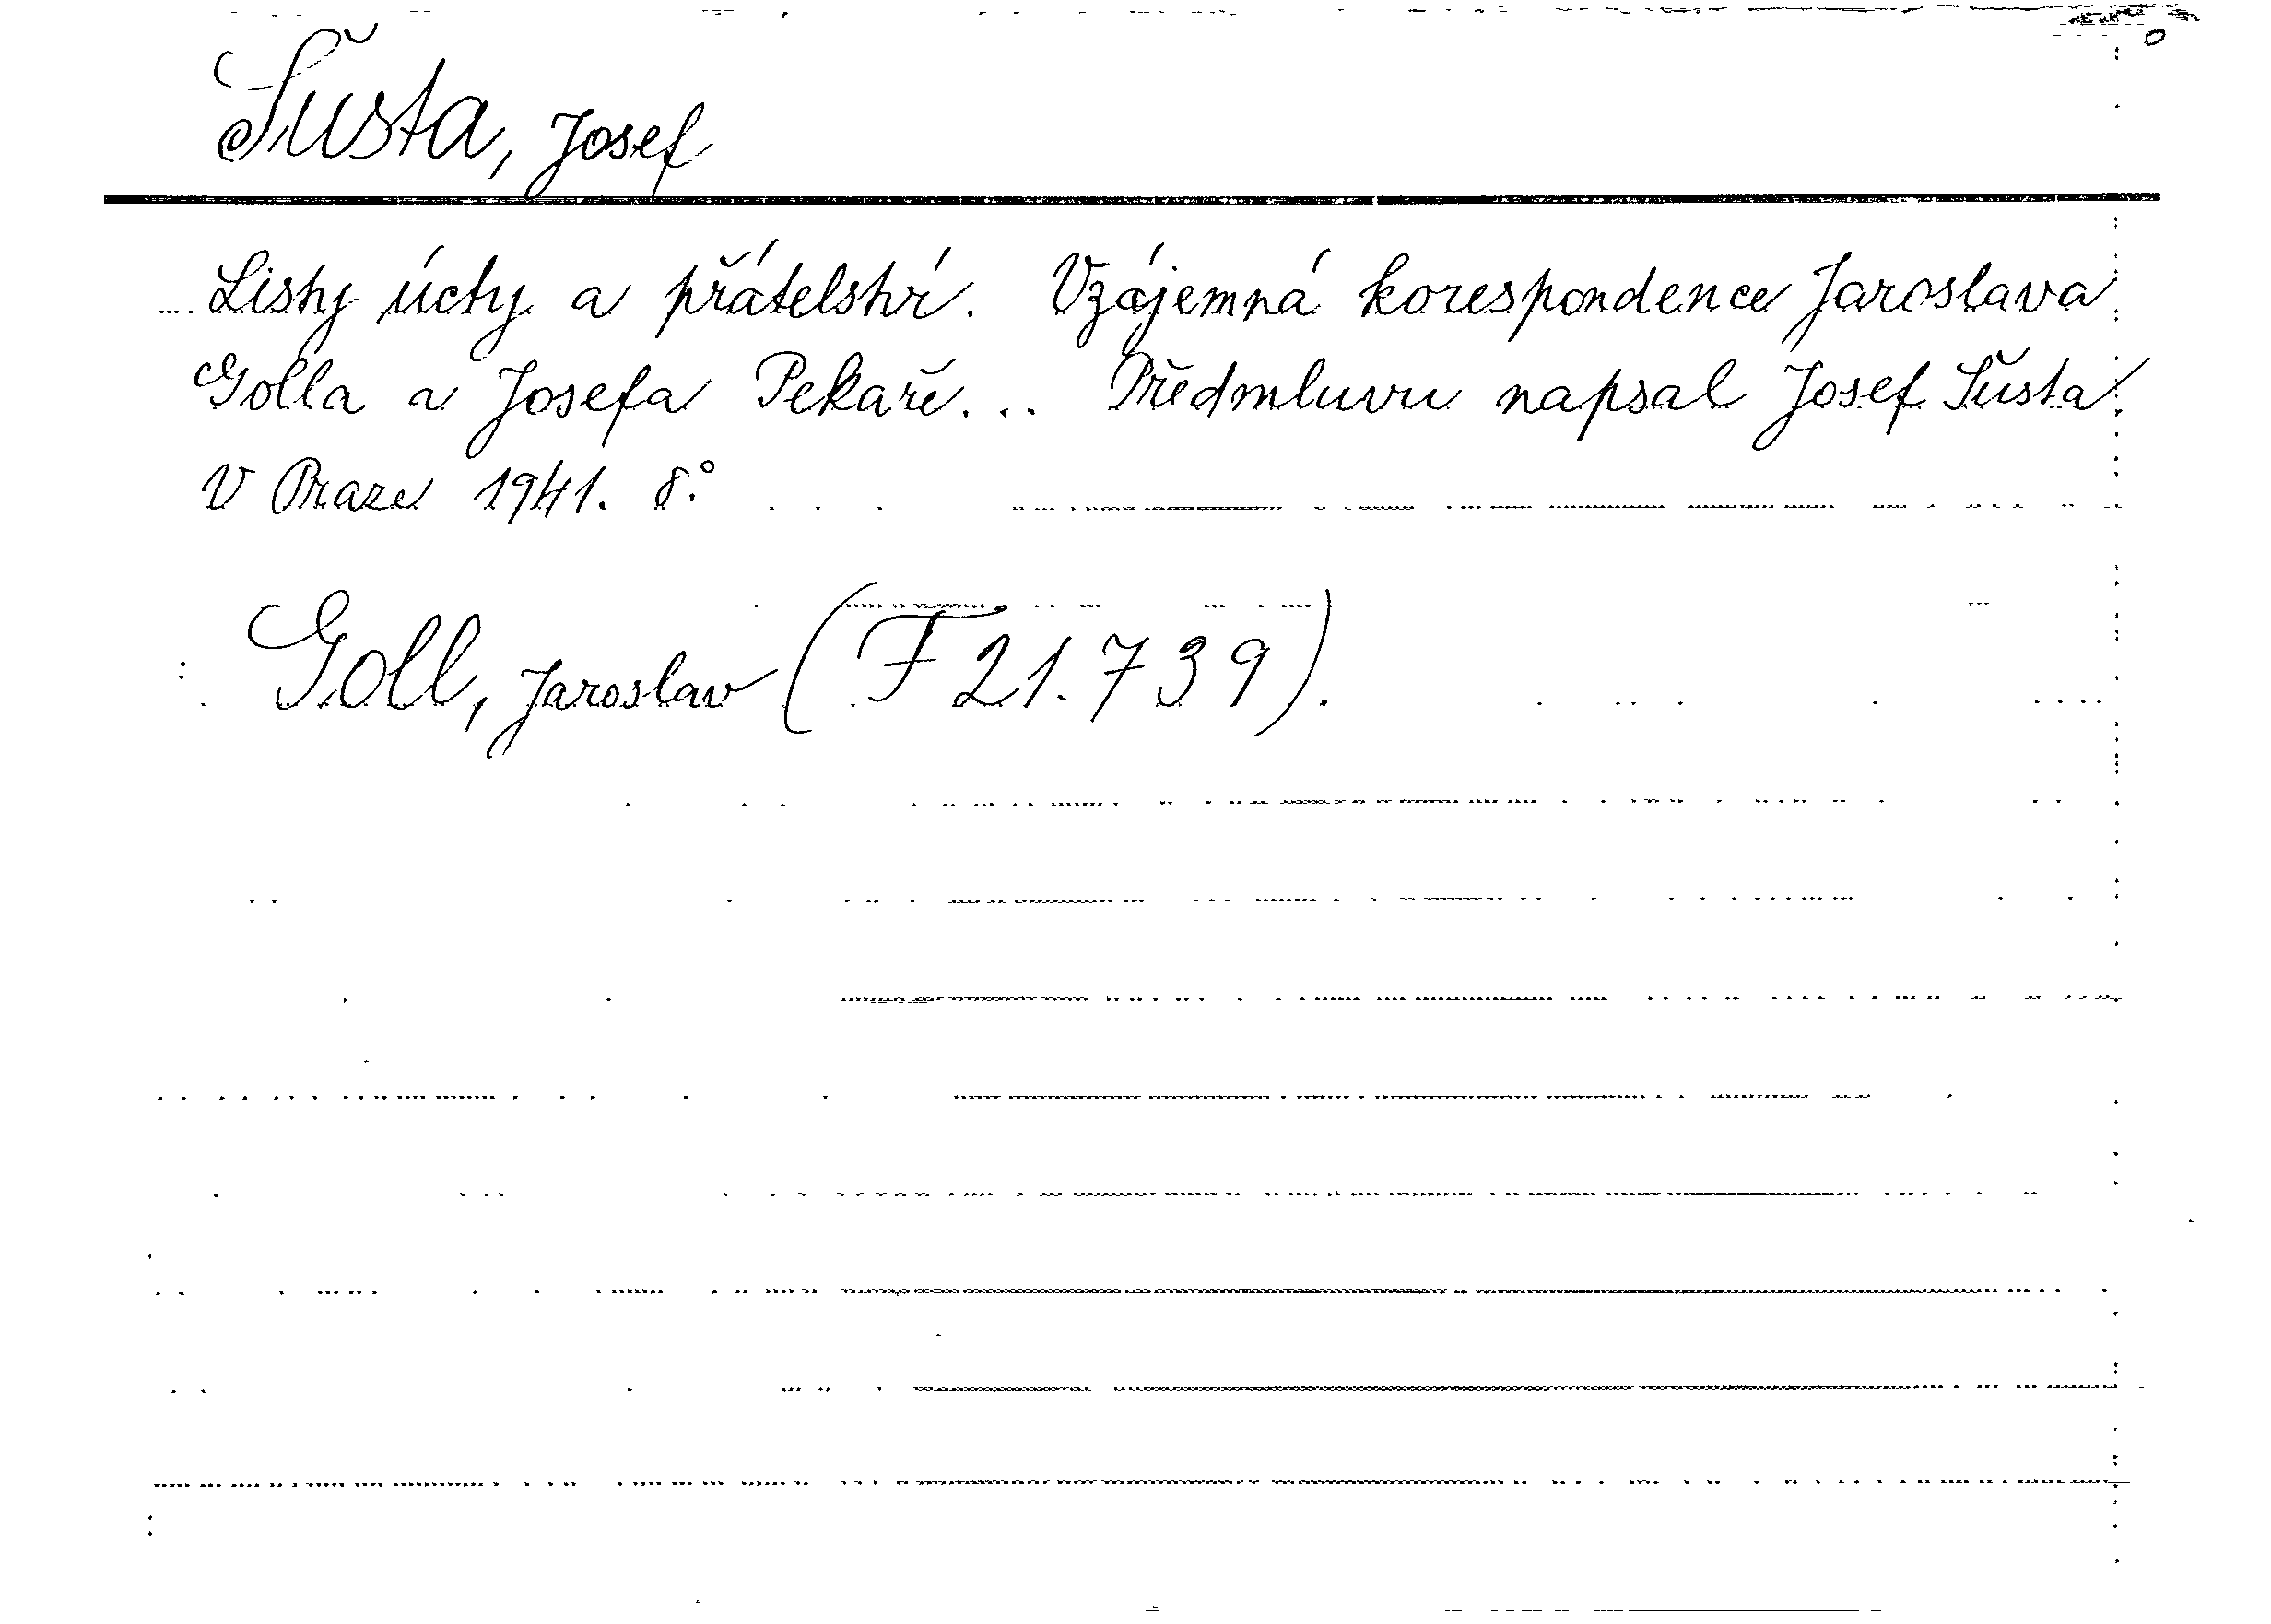 Šusta, Josef
Listy úcty a přátelství. Vzájemná korespondence Jaroslava
Golla a Josefa Pekaře... Předmluvu napsal Josef Šusta.
V Praze 1941. 8.°
Goll, Jaroslav (F 21.739).